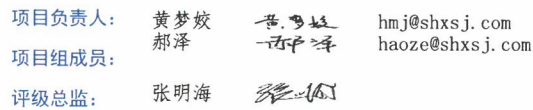 项目负责人： 黄梦姣 黄梦姣 hmj@shxsj.com
郝泽 郝泽 haoze@shxsj.com
项目组成员：
评级总监： 张明海